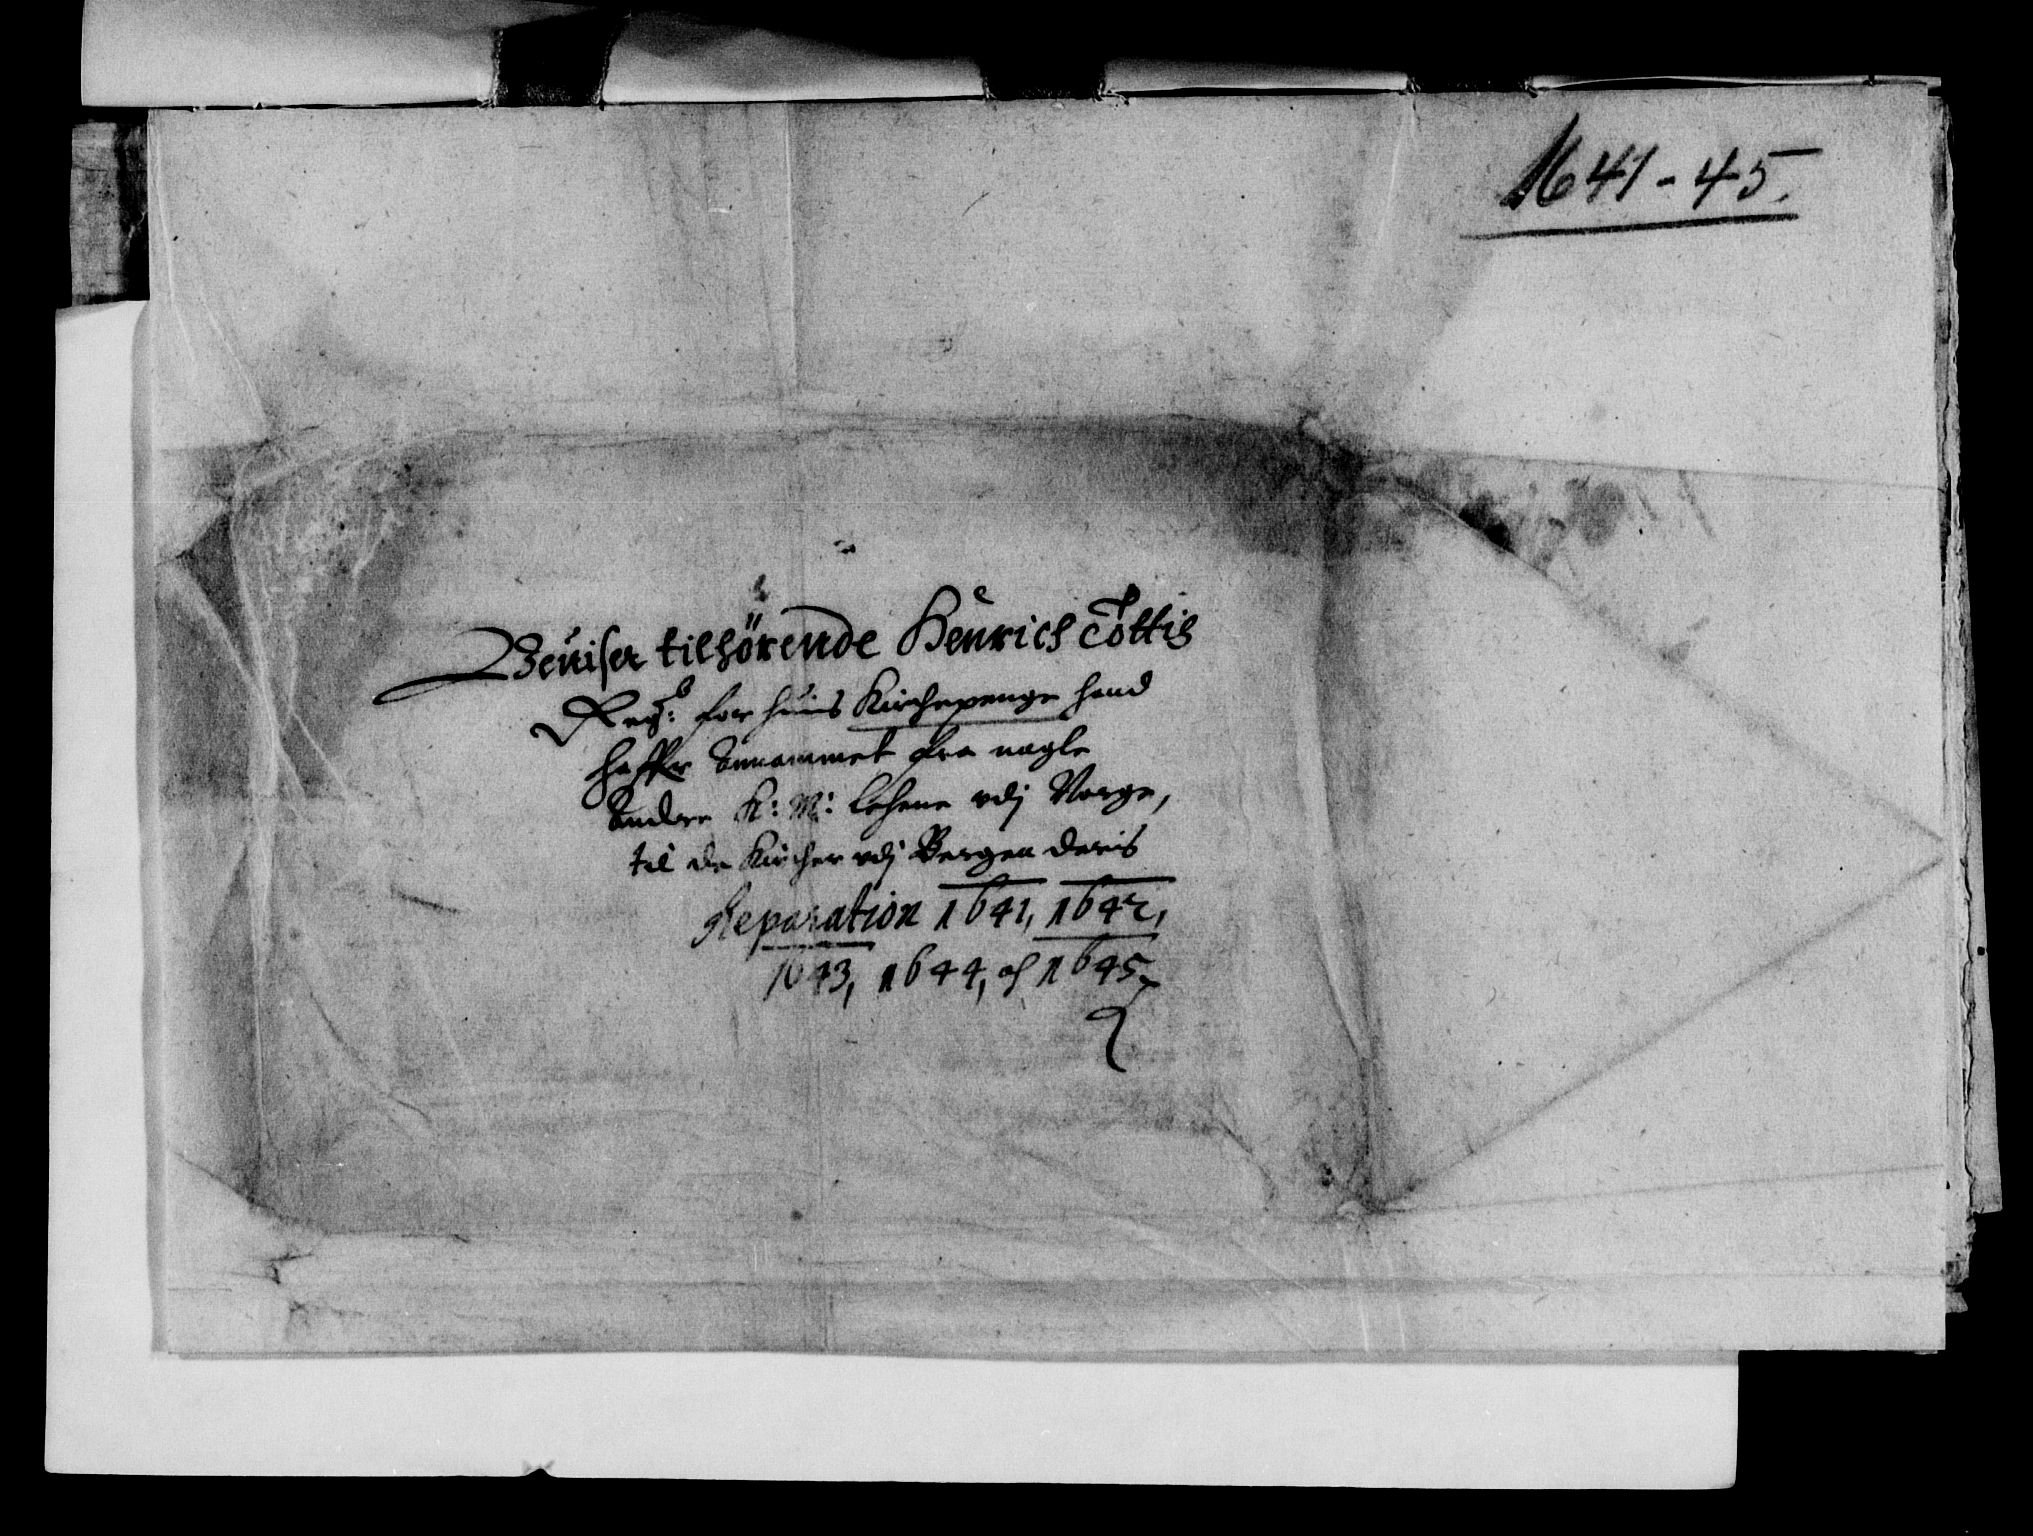 1641-45.
Beuiser tilhörende Henrich Tottis
Regs: for huis Kirchepenge hand
haffr Annammet fra nogle
Andre K: M: Lehene vdj Norge,
til de Kircher vdj Bergen deris
Reparation 1641, 1642,
1643, 1644, och 1645